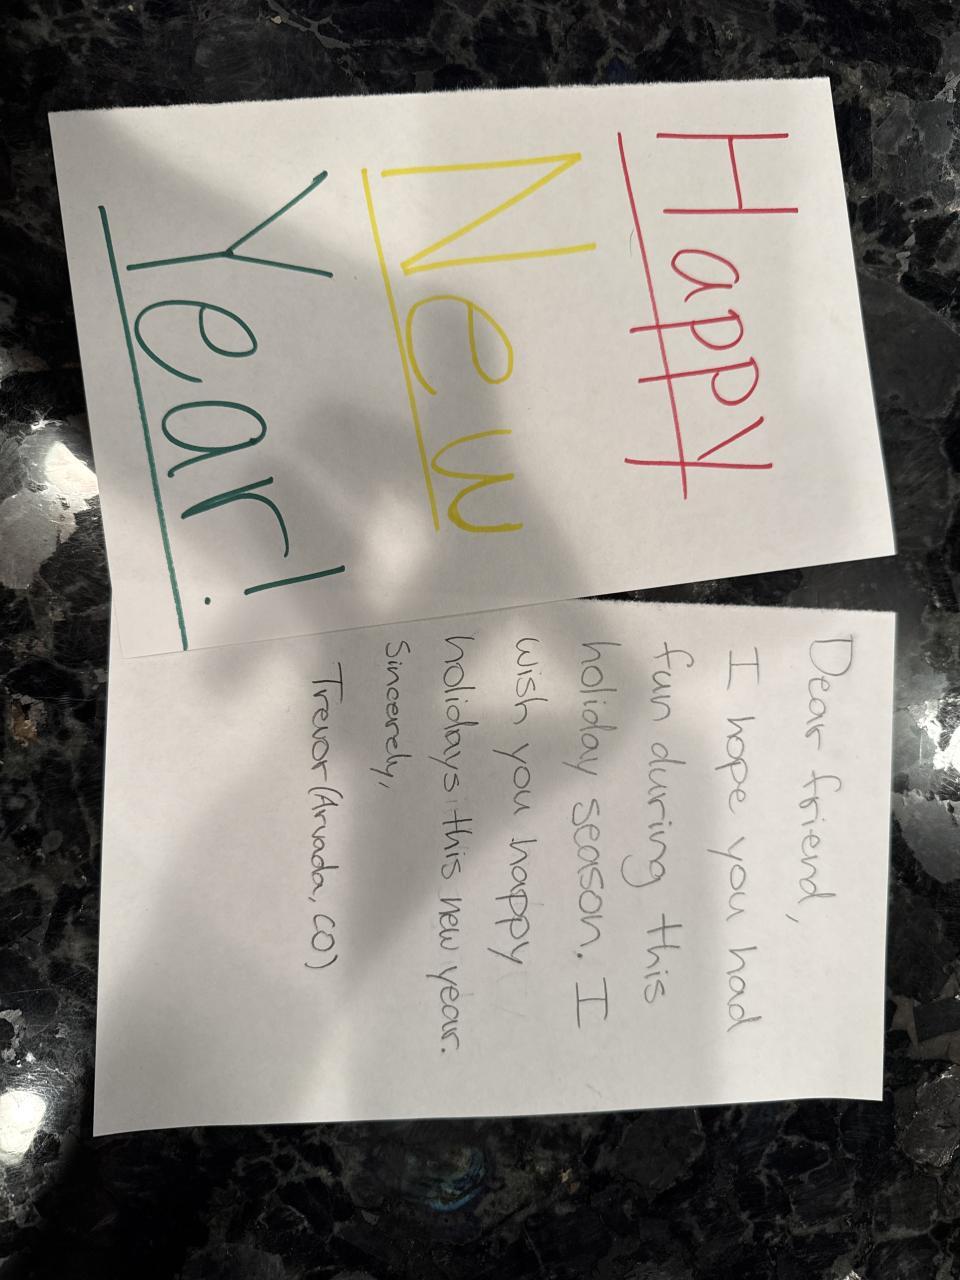 Happy
New
Year!
Dear friend,
I hope you had
fun during this
holiday season. I
wish you happy
holidays this new year.
Sincerely,
Trevor (Arvada, CO)